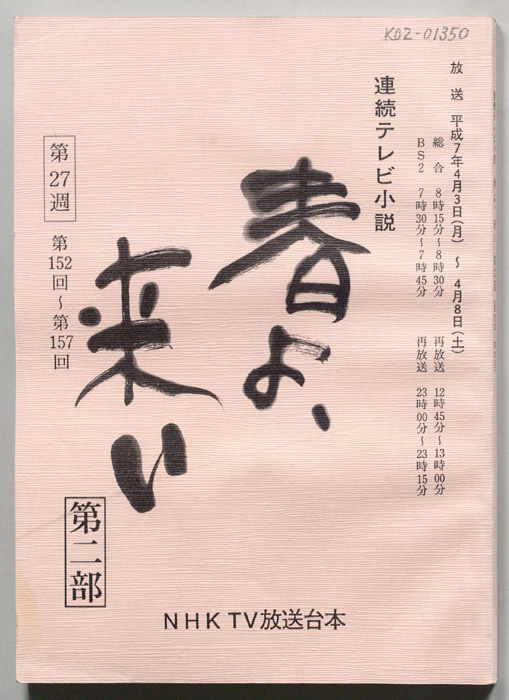 KDZ-01350
放送 平成7年4月3日(月) ~ 4月8日(土)
総合 8時15分~8時30分 再放送 12時45分~13時00分
BS2 7時30分~7時45分 再放送 23時00分~23時15分
連続テレビ小説
春よ、
来い
第27週
第152回~第157回
第二部
NHK TV放送台本